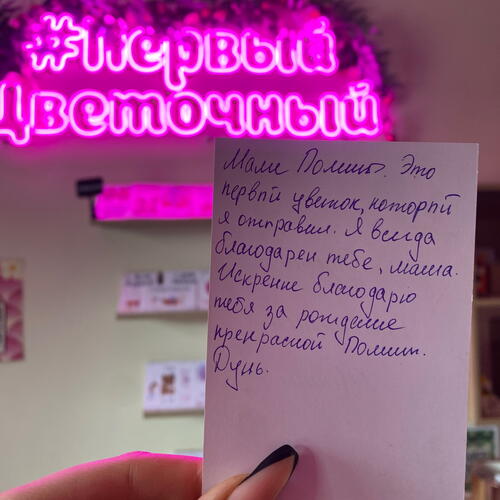 #Первый
Цветочный
Маме Полины. Это
первый цветок, который
я отправил. Я всегда
благодарен тебе, мама.
Искренне благодарю
тебя за рождение
прекрасной Полины.
Дунь.